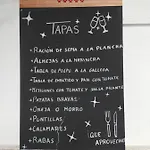 TAPAS
+RACIÓN DE SEPIA A LA PLANCHA
+ALMEJAS A LA MARINERA
+TABLA DE PULPO A LA GALLEGA
+TABLA DE EMBUTIDO Y PAN CON TOMATE
+MEJILLONES CON TOMATE Y SALSA PICANTE
+PATATAS BRAVAS
+OREJA O MORRO
+PUNTILLAS
+CALAMARES
+RABAS
¡QUE
APROVECHE!